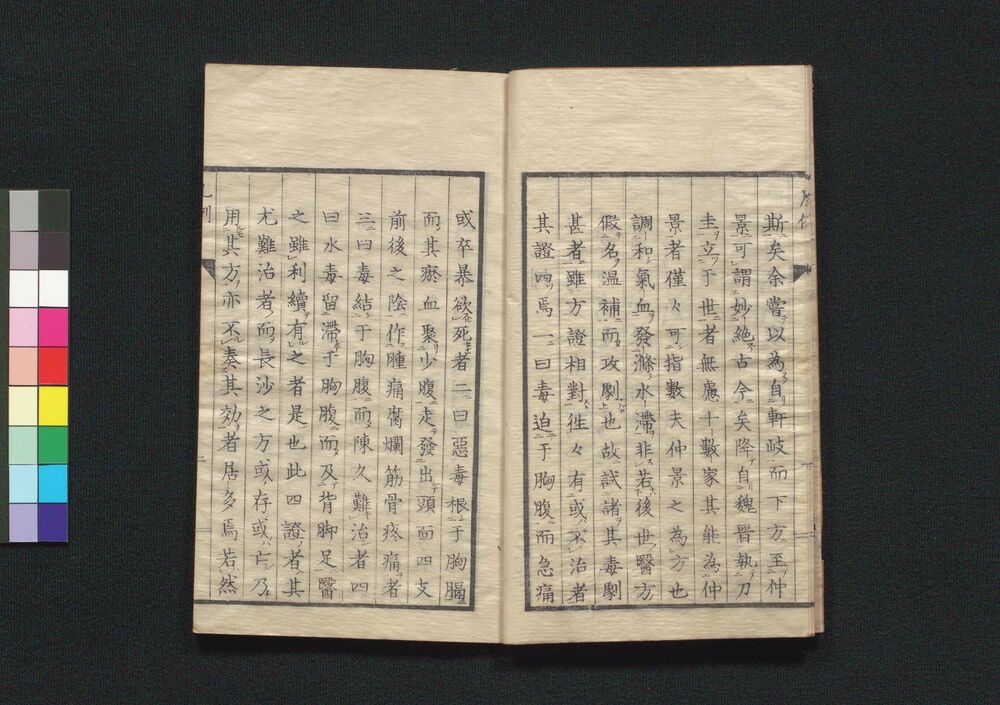 斯矣余嘗以為自軒岐而下方至仲
景可謂妙絶古今矣降自魏晋執刀
圭立于世者無慮十數家其能為仲
景者僅々可指數夫仲景之為方也
調和氣血發滌水滯非若後世醫方
假名温補而攻劇也故試諸其毒劇
甚者雖方證相對徃々有或不治者
其證四焉一曰毒迫于胸腹而急痛
或卒暴欲死者二曰惡毒根于胸膈
而其瘀血聚少腹走發出頭面四支
前後之陰作腫痛腐爛筋骨疼痛者
三曰毒結于胸腹而陳久難治者四
曰水毒留滯于胸腹而及背脚足醫
之雖利續有之者是也此四證者其
尤難治者而長沙之方或存或亡乃
用其方亦不奏其効者居多焉若然
凡例